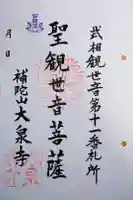 武相観世音第十一番札所
聖観世音菩薩
補陀山大泉寺
月日